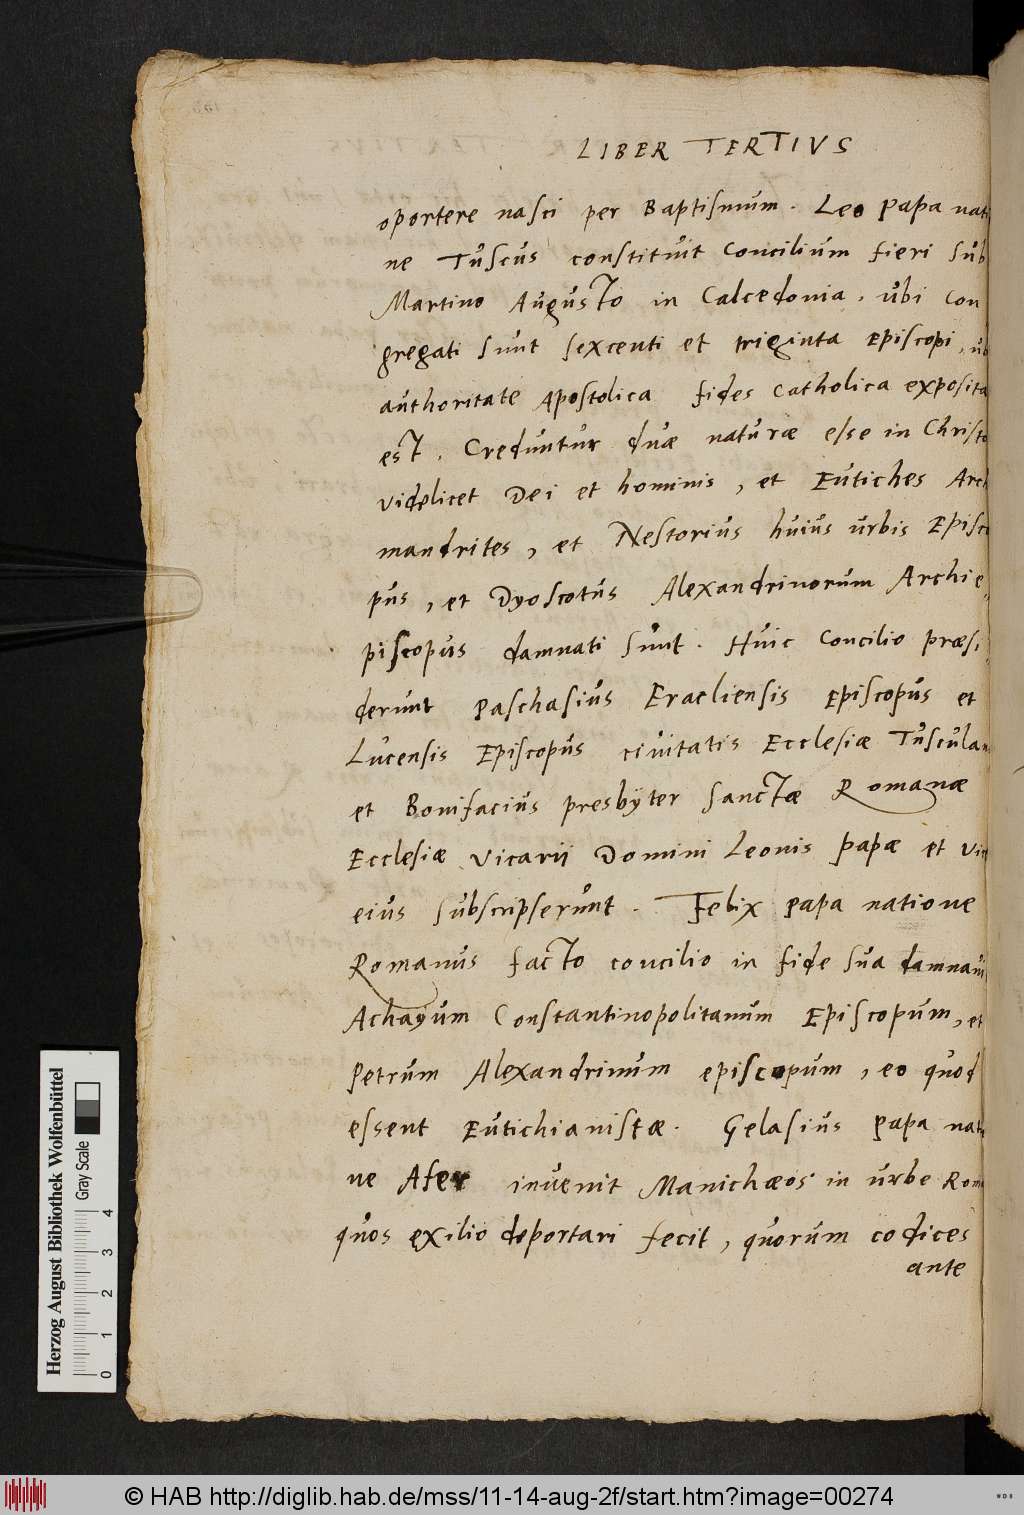 LIBER TERTIVS
oportere nasci per Baptismum. Leo Papa nati
ne Tuscus constituit Concilium fieri sub
Martino Augusto in Calcedonia, ubi con
gregati sunt sexcenti et triginta Episcopi, ub
authoritate Apostolica fides Catholica exposita
est. Creduntur duæ naturæ esse in Christo
videlicet Dei et hominis, et Eutiches Arch
mandrites, et Nestorius huius urbis Episco
pus, et Dyoscotus Alexandrinorum Archie-
piscopus damnati sunt. Huic Concilio præsi-
derunt Paschasius Eracliensis Episcopus et
Lucensis Episcopus civitatis Ecclesiæ Tusculan
et Bonifacius presbyter sanctæ Romanæ
Ecclesiæ vicarii Domini Leonis papæ et vic
eius subscripserunt. Felix papa natione
Romanus facto concilio in fide sua damnavi
Achayum Constantinopolitanum Episcopum, et
Petrum Alexandrinum episcopum, eo quod
essent Eutichianistæ. Gelasius papa nati
ne Afer invenit Manichæos in urbe Roma
quos exilio deportari fecit, quorum codices
ante
Herzog August Bibliothek Wolfenbüttel
Gray Scale
0 1 2 3 4
© HAB http://diglib.hab.de/mss/11-14-aug-2f/start.htm?image=00274